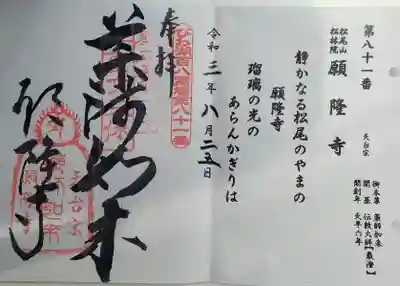 第八十一番
松尾山
松林院
願隆寺
天台宗
御本尊 薬師如来
開基 伝教大師【最澄】
開創年 大年六年
静かなる松尾のやまの
願隆寺
瑠璃の光の
あらんかぎりは
令和三年八月二五日
奉拝
薬師如来
願隆寺
天台宗